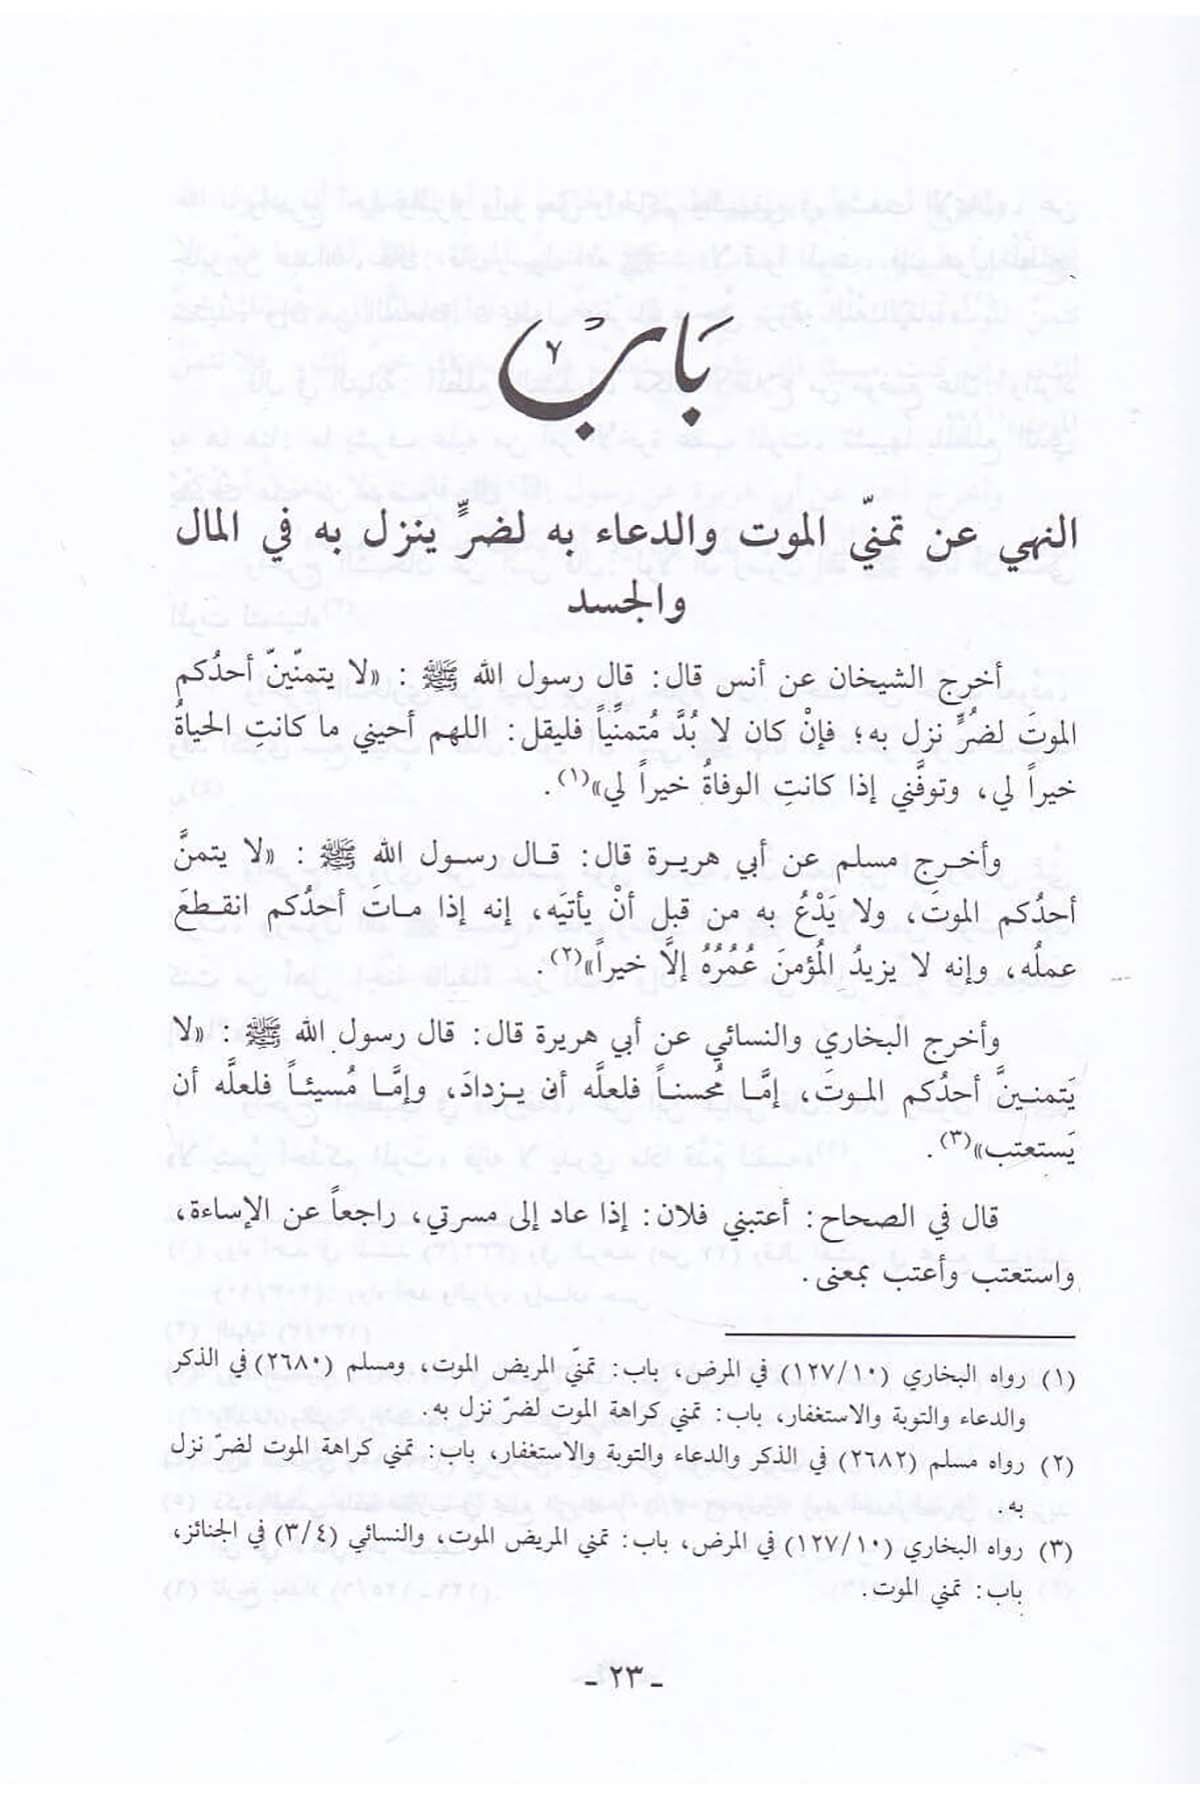 باب
النهي عن تمنّي الموت والدعاء به لضرٍّ ينزل به في المال
والجسد
أخرج الشيخان عن أنس قال: قال رسول الله ﷺ : «لا يتمنّينّ أحدُكم
الموتَ لضُرٍّ نزل به؛ فإنْ كان لا بُدَّ مُتمنِّياً فليقل: اللهم أحيني ما كانتِ الحياةُ
خيراً لي، وتوفَّني إذا كانتِ الوفاةُ خيراً لي»(١).
وأخرج مسلم عن أبي هريرة قال: قال رسول الله ﷺ : «لا يتمنَّ
أحدُكم الموتَ، ولا يَدْعُ به من قبل أنْ يأتيَه، إنه إذا ماتَ أحدُكم انقطعَ
عملُه، وإنه لا يزيدُ المُؤمنَ عُمُرُهُ إلَّا خيراً»(٢).
وأخرج البخاري والنسائي عن أبي هريرة قال: قال رسول الله ﷺ : «لا
يَتمنينَّ أحدُكم الموتَ، إمَّا مُحسناً فلعلَّه أن يزدادَ، وإمَّا مُسيئاً فلعلَّه أن
يَستعتب»(٣).
قال في الصحاح: أعتبني فلان: إذا عاد إلى مسرتي، راجعاً عن الإساءة،
واستعتب وأعتب بمعنى.
(١) رواه البخاري (١٠/١٢٧) في المرض، باب: تمنّي المريض الموت، ومسلم (٢٦٨٠) في الذكر
والدعاء والتوبة والاستغفار، باب: تمني كراهة الموت لضرّ نزل به.
(٢) رواه مسلم (٢٦٨٢) في الذكر والدعاء والتوبة والاستغفار، باب: تمني كراهة الموت لضرّ نزل
به.
(٣) رواه البخاري (١٠/١٢٧) في المرض، باب: تمني المريض الموت، والنسائي (٣/٤) في الجنائز،
باب: تمني الموت.
- ٢٣ -